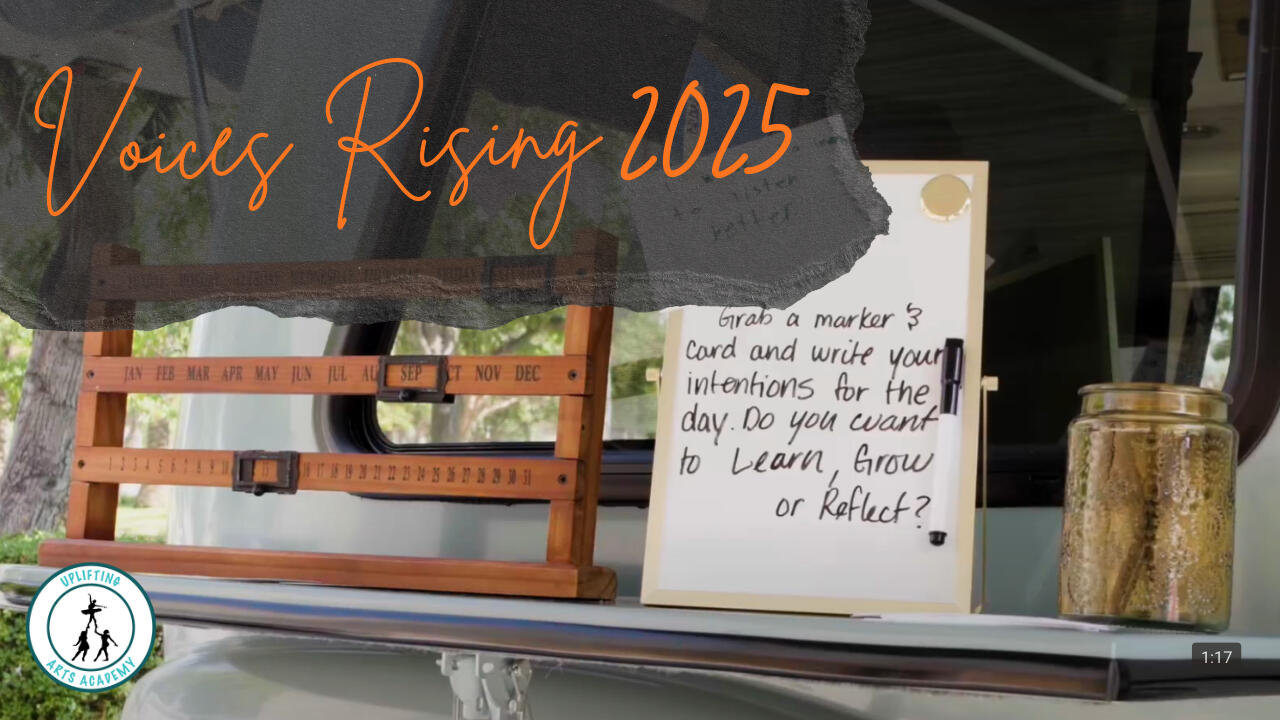 Voices Rising 2025
to listen
better
JAN FEB MAR APR MAY JUN JUL AU SEP CT NOV DEC
1 2 3 4 5 6 7 8 9 13 16 17 18 19 20 21 22 23 24 25 26 27 28 29 30 31
Grab a marker &
card and write your
intentions for the
day. Do you want
to Learn, Grow
or Reflect?
UPLIFTING
ARTS ACADEMY
1:17